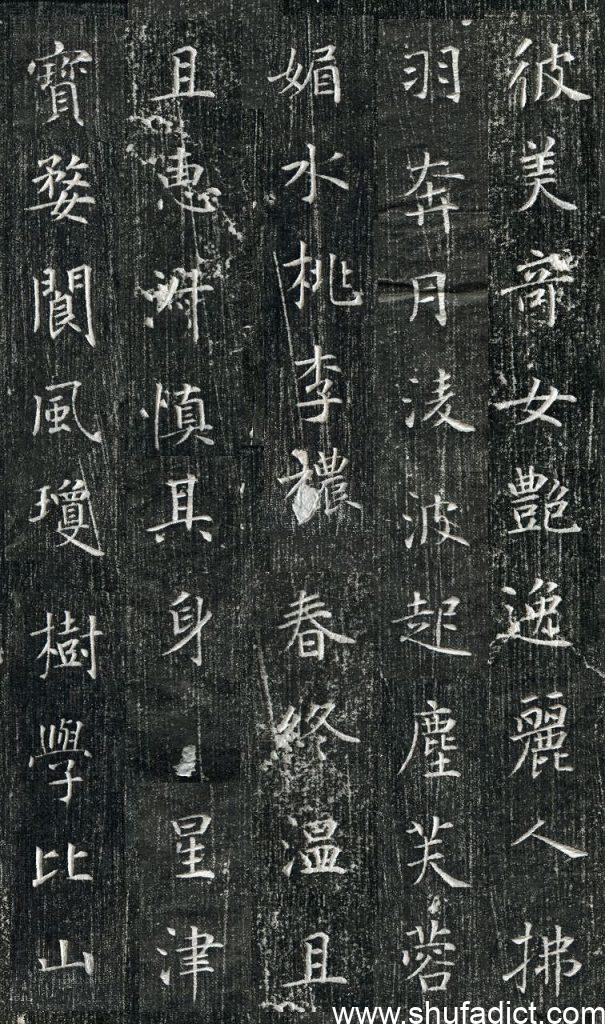 彼美竒女艷逸麗人拂
羽奔月淩波起塵芙蓉
媚水桃李穠春終温且
且惠淑慎其身星津
寶婺閬風瓊樹學比山
www.shufadict.com